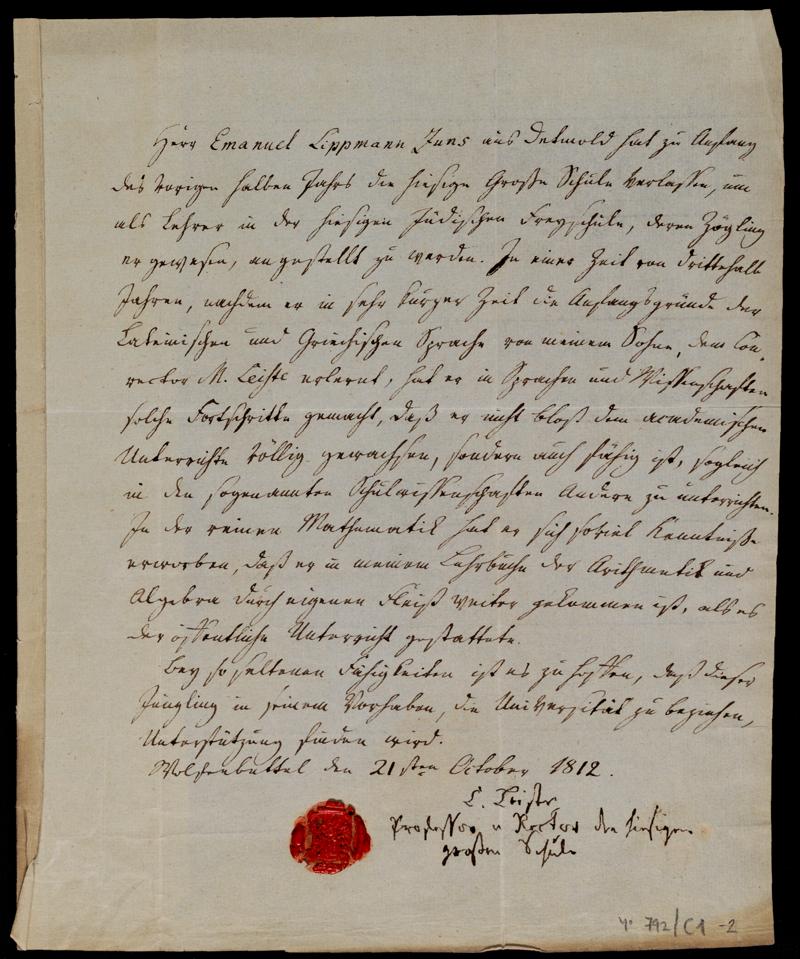 Herr Emanuel Lippmann Zuns aus Detmold hat zu Anfang
des vorigen halben Jahrs die hiesige Große Schule verlassen, um
als Lehrer in der hiesigen Jüdischen Freyschule, deren Zögling
er gewesen, angestellt zu werden. In einer Zeit von drittehalb
Jahren, nachdem er in sehr kurzer Zeit die Anfangsgründe der
Lateinischen und Griechischen Sprache von meinem Sohne, dem Con-
rector M. Leiste erlernt, hat er in Sprachen und Wissenschaften
solche Fortschritte gemacht, daß er nicht bloß dem academischen
Unterrichte völlig gewachsen, sondern auch fähig ist, sogleich
in den sogenannten Schulwissenschaften Andere zu unterrichten.
In der reinen Mathematik hat er sich soviel Kenntniße
erworben, daß er in meinem Lehrbuche der Arithmetik und
Algebra durch eigenen Fleiß weiter gekommen ist, als es
der öffentliche Unterricht gestattete.
Bey so seltenen Fähigkeiten ist es zu hoffen, daß dieser
Jüngling in seinem Vorhaben, die Universität zu beziehen,
Unterstützung finden wird.
Wolfenbüttel den 21sten October 1812.
C. Leiste
Professor u Rector der hiesigen
großen Schule
4° 792/C1-2